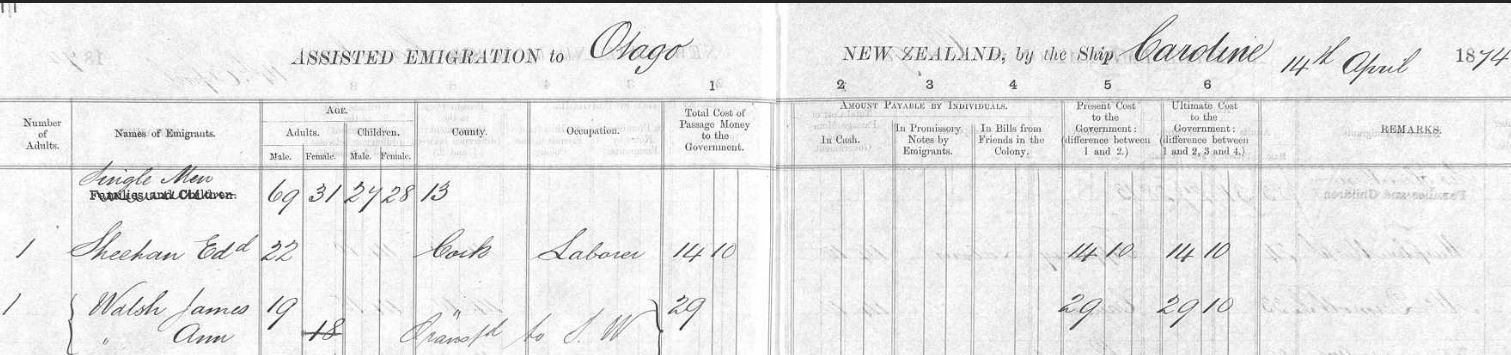 ASSISTED EMIGRATION to Otago NEW ZEALAND, by the Ship Caroline 14th April 1874
1 2 3 4 5 6
Number of Adults. Names of Emigrants. AGE. County. Occupation. Total Cost of Passage Money to the Government. AMOUNT PAYABLE BY INDIVIDUALS. Present Cost to the Government: (difference between 1 and 2.) Ultimate Cost to the Government: (difference between 1 and 2, 3 and 4.) REMARKS.
Adults. Children. In Cash. In Promissory Notes by Emigrants. In Bills from Friends in the Colony.
Male. Female. Male. Female.
Single Men
Families and Children 69 31 27 28 13
1 Sheehan Edd 22 Cork Laborer 14 10 14 10 14 10
1 Walsh James 19 " 29 29 29 10
" Ann 18 Transfd to S. W